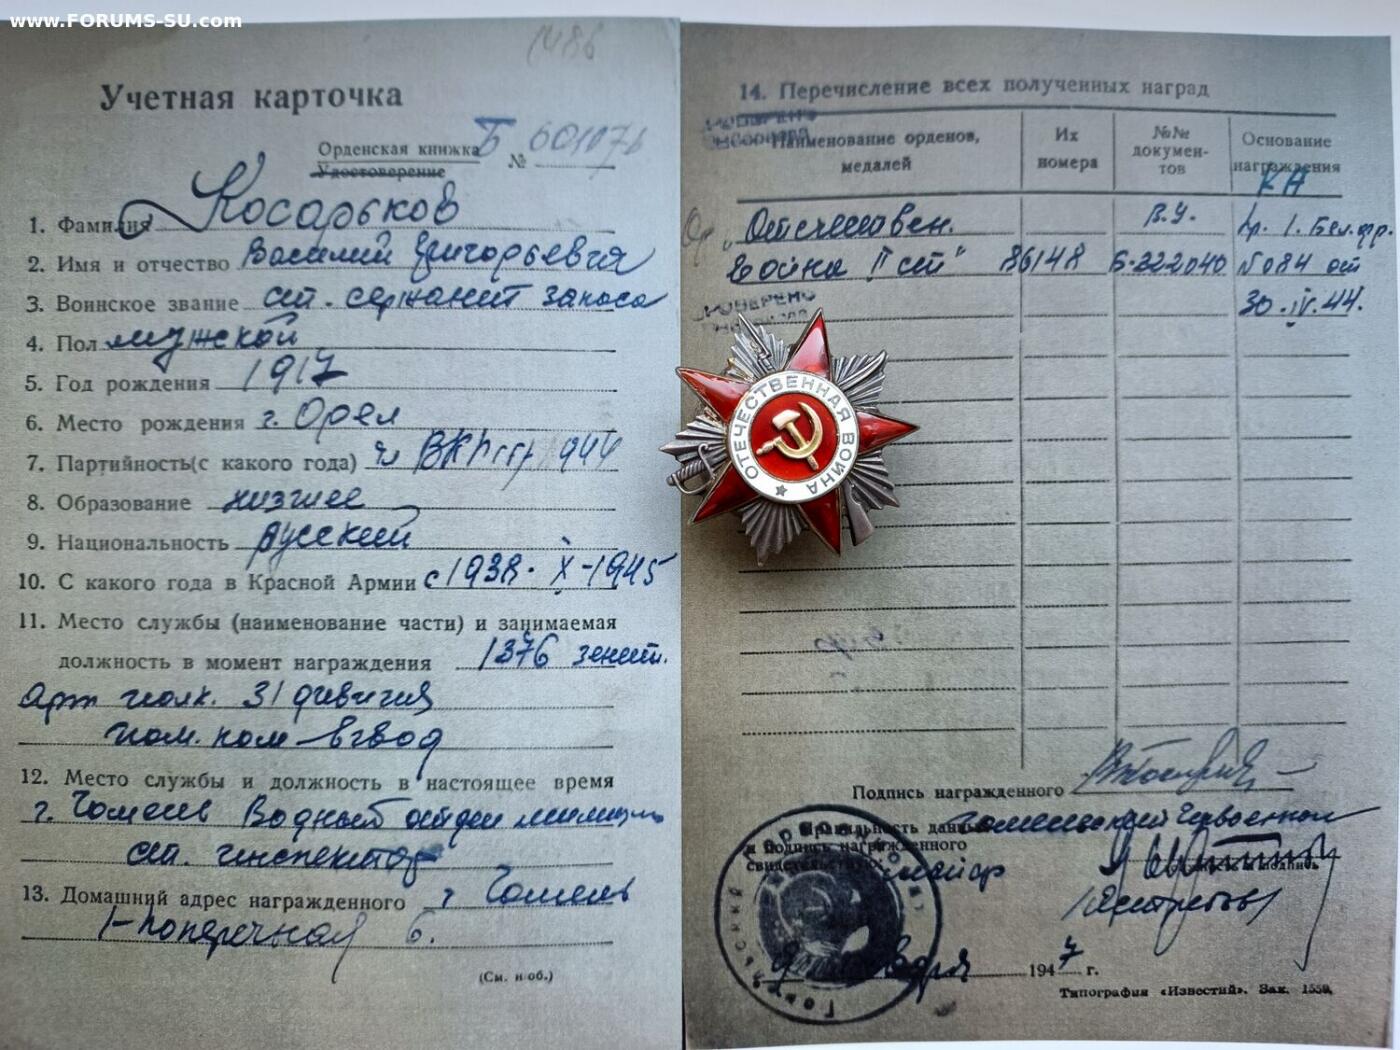 www.FORUMS-SU.com
1486
Учетная карточка
Орденская книжка Б
Удостоверение № 601076
1. Фамилия Косарьков
2. Имя и отчество Василий Григорьевич
3. Воинское звание ст. сержант запаса
4. Пол мужской
5. Год рождения 1917
6. Место рождения г. Орел
7. Партийность(с какого года) чл ВКП(б) 1944
8. Образование низшее
9. Национальность русский
10. С какого года в Красной Армии с 1938. X-1945
11. Место службы (наименование части) и занимаемая
должность в момент награждения 1376 зенит.
арт полк. 31 дивизия
пом. ком взвод
12. Место службы и должность в настоящее время
г. Гомель Водный отдел милиции
ст. инспектор
13. Домашний адрес награжденного г Гомель
1-Поперечная 6.
(См. н об.)
14. Перечисление всех полученных наград
ПРОВЕРЕНО
Наименование орденов, медалей
Их номера
№№ документов
Основание награждения
КА
Ор „Отечествен. В.У. Пр. 1. Бел.фр.
Война II ст" 86148 Б-222040 № 084 от
ПРОВЕРЕНО 30.IV.44.
ОТЕЧЕСТВЕННАЯ ВОЙНА
Подпись награжденного
Правильность данных Гомельский Горвоенком
и подпись награжденного
свидетельствую майор
9 января 1947 г.
Типография «Известий». Зак. 1559.